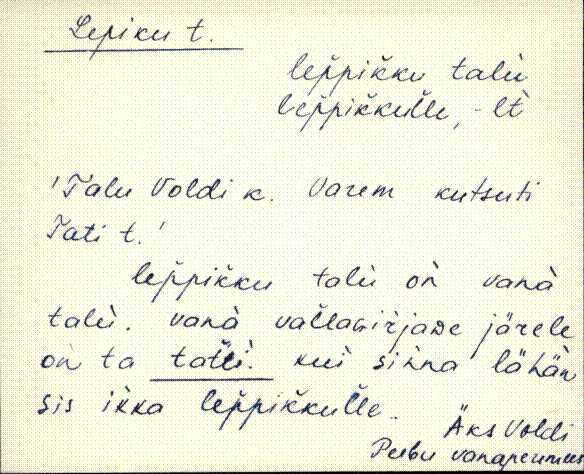 Lepiku t.
lep̆pik̆ku talù
lep̆pik̆kul̆le, -lt̀
'Talu Voldi k. Varem kutsuti
Tati t.'
lep̆pik̆ku talù oǹ vanà
talù. vanà val̆la järele
oǹ ta tat̆ti. kui sinna lähäǹ
sis ik̆ka lep̆pik̆kul̆le.
Äks Voldi
Peebu vanaperemees